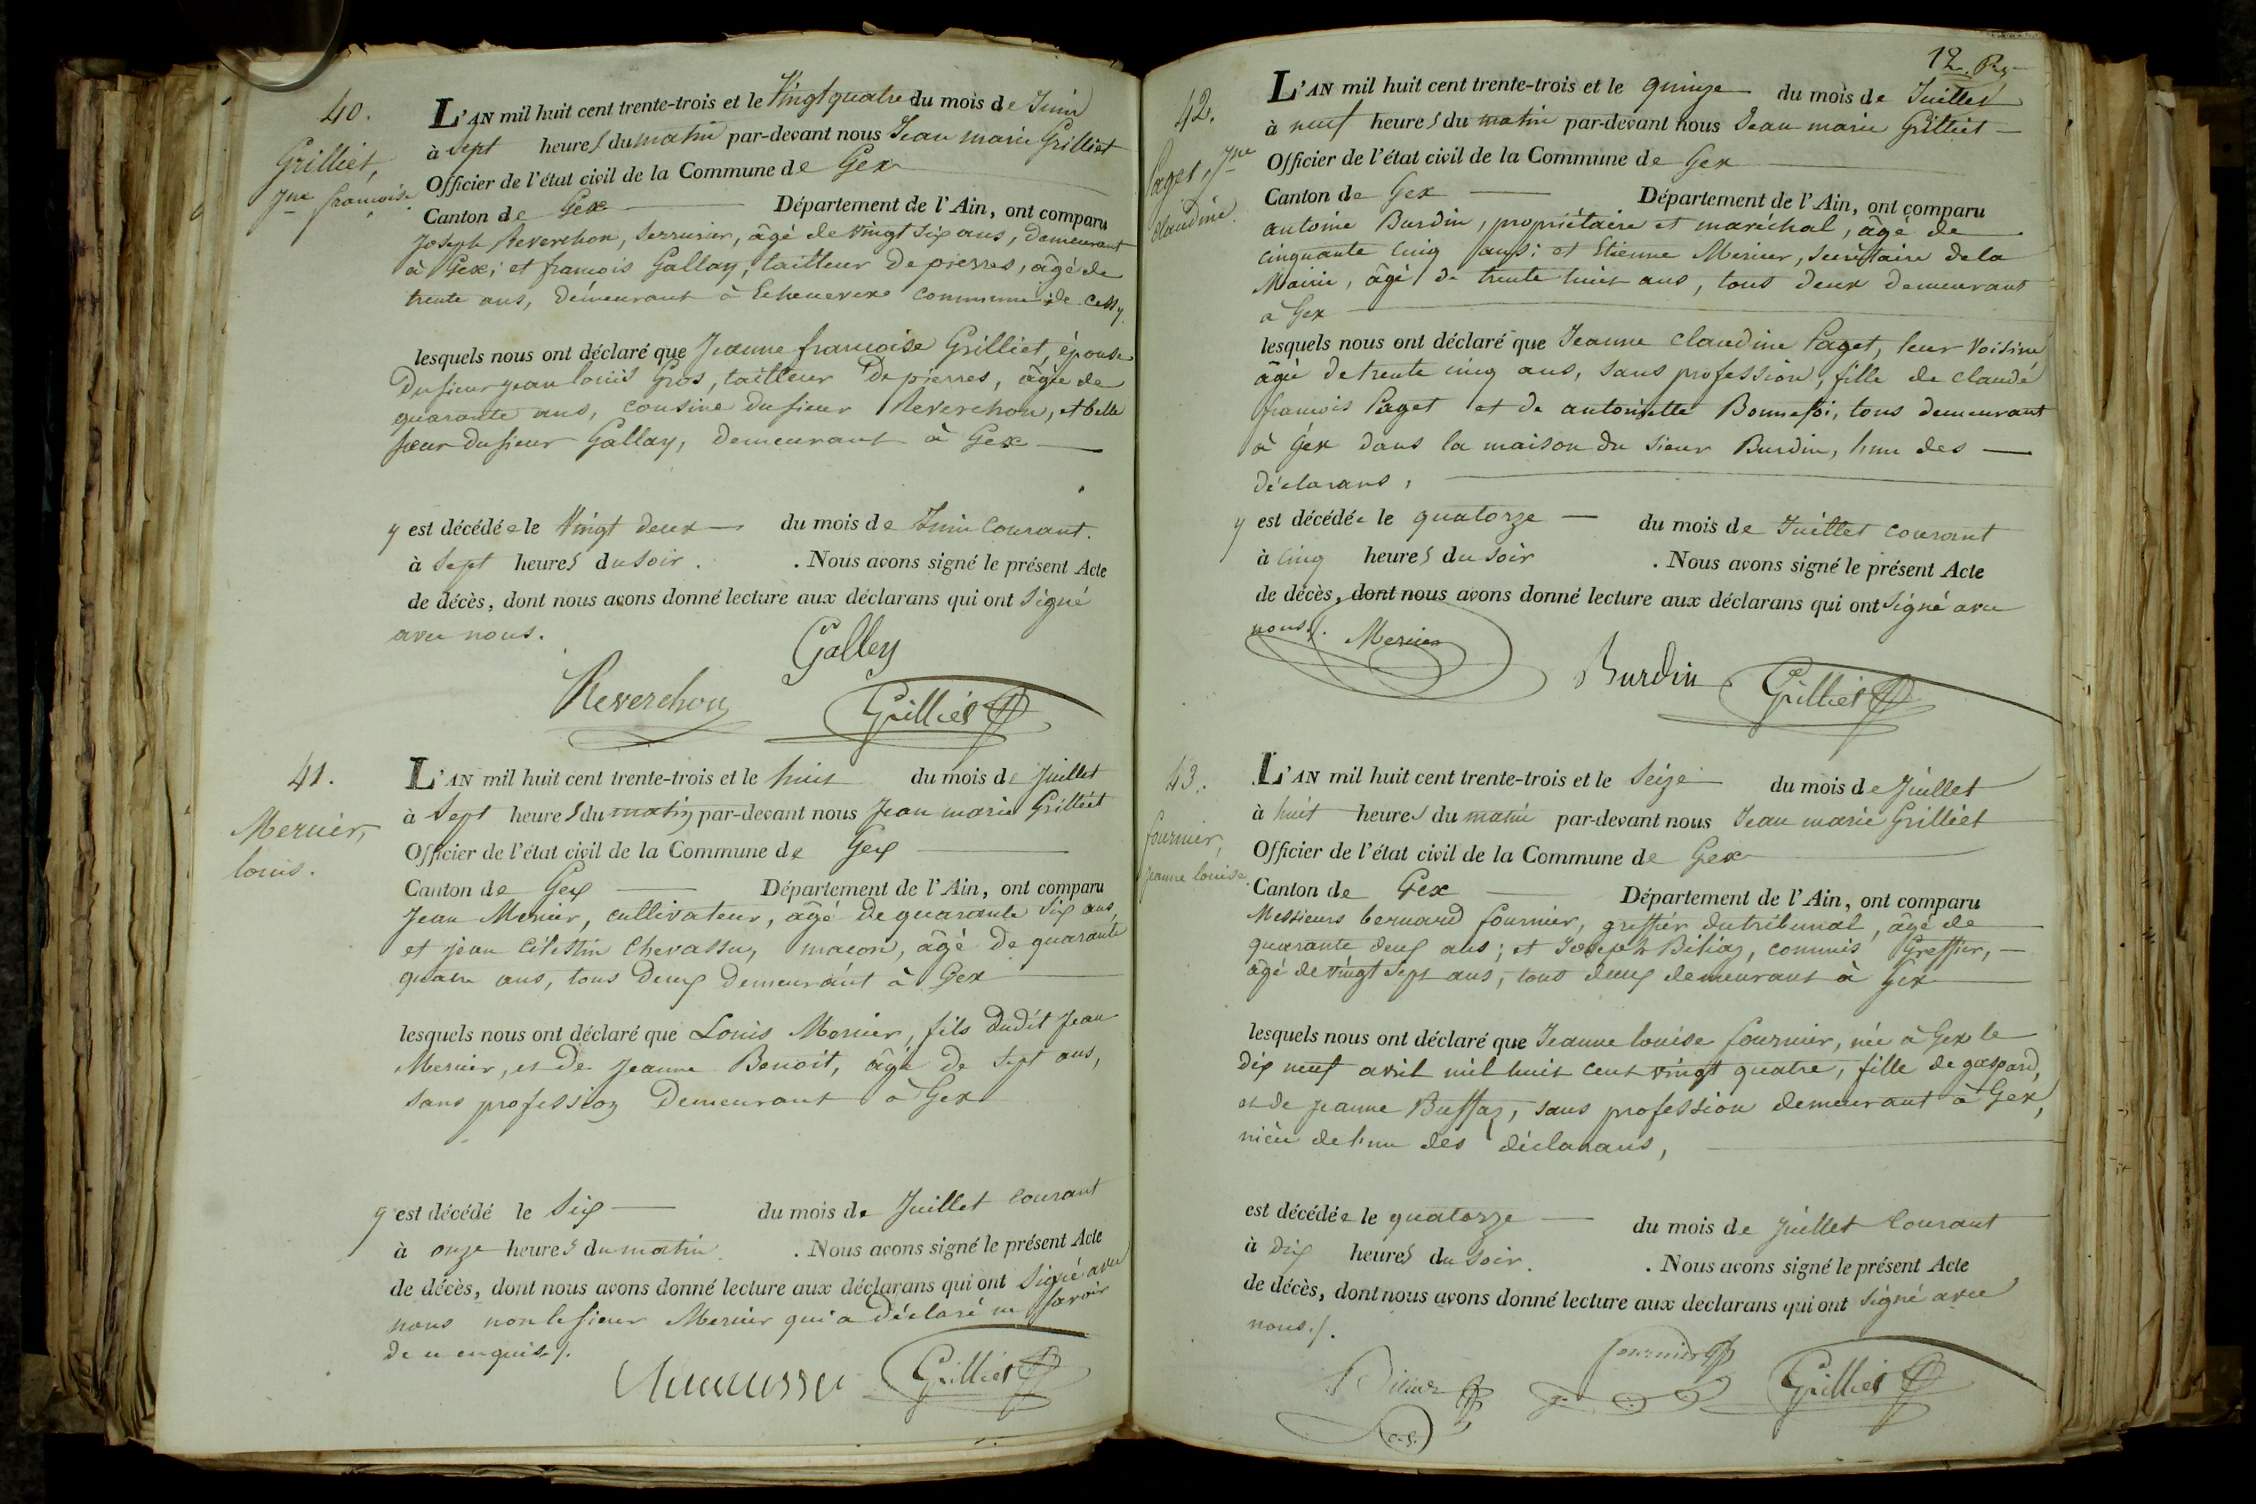 40.
Grilliet,
Jne françoise.
L'AN mil huit cent trente-trois et le Vingt quatre du mois de Juin
à Sept heures du matin par-devant nous Jean marie Grilliet
Officier de l'état civil de la Commune de Gex
Canton de Gex Département de l'Ain, ont comparu
Joseph Reverchon, serrurier, âgé de vingt six ans, demeurant
à Gex; et francois Gallay, tailleur de pierres, âgé de
trente ans, demeurant à Echenevex commune de Cessy.
lesquels nous ont déclaré que Jeanne francoise Grilliet, épouse
du sieur jean louis Gros, tailleur de pierres, âgée de
quarante ans, cousine du sieur Reverchon, et belle
sœur du sieur Gallay, demeurant à Gex
y est décédée le Vingt deux du mois de Juin courant.
à Sept heures du soir . . Nous avons signé le présent Acte
de décès, dont nous avons donné lecture aux déclarans qui ont signé
avec nous.
Galley
Reverchon
Grilliet
41.
Mercier,
louis.
L'AN mil huit cent trente-trois et le huit du mois de Juillet
à Sept heures du matin par-devant nous Jean marie Grilliet
Officier de l'état civil de la Commune de Gex
Canton de Gex Département de l'Ain, ont comparu
Jean Mercier, cultivateur, âgé de quarante six ans,
et jean Célestin Chevassu, macon, âgé de quarante
quatre ans, tous deux demeurant à Gex
lesquels nous ont déclaré que Louis Mercier, fils dudit Jean
Mercier, et de Jeanne Benoit, âgé de Sept ans,
sans profession demeurant à Gex
y est décédé le Six du mois de Juillet courant
à onze heures du matin . Nous avons signé le présent Acte
de décès, dont nous avons donné lecture aux déclarans qui ont Signé avec
nous non le sieur Mercier qui a déclaré ne savoir
de ce enquis./.
Grilliet
12.
42.
Paget, Jne
claudine.
L'AN mil huit cent trente-trois et le quinze du mois de Juillet
à neuf heures du matin par-devant nous Jean marie Grilliet
Officier de l'état civil de la Commune de Gex
Canton de Gex Département de l'Ain, ont comparu
antoine Burdin, propriétaire et maréchal, âgé de
cinquante cinq ans; et Etienne Mercier, secrétaire de la
Mairie, âgé de trente huit ans, tous deux demeurant
à Gex
lesquels nous ont déclaré que Jeanne Claudine Paget, leur voisine
âgée de trente cinq ans, sans profession, fille de claude
francois Paget et de antoinette Bonnefoi, tous demeurant
à Gex dans la maison du sieur Burdin, l'un des
déclarans,
y est décédée le quatorze du mois de Juillet courant
à cinq heures du soir . Nous avons signé le présent Acte
de décès, dont nous avons donné lecture aux déclarans qui ont signé avec
nous./.
Mercier
Burdin
Grilliet
43.
fournier,
jeanne louise.
L'AN mil huit cent trente-trois et le Seize du mois de Juillet
à huit heures du matin par-devant nous Jean marie Grilliet
Officier de l'état civil de la Commune de Gex
Canton de Gex Département de l'Ain, ont comparu
Messieurs bernard fournier, greffier du tribunal, âgé de
quarante deux ans; et Joseph commis Greffier,
âgé de vingt sept ans, tous deux demeurant à Gex
lesquels nous ont déclaré que Jeanne louise fournier, née à Gex le
dix neuf avril mil huit cent vingt quatre, fille de gaspard,
et de jeanne Buffaz, sans profession demeurant à Gex,
nièce de l'un des déclarans,
est décédée le quatorze du mois de juillet courant
à dix heures du soir. . Nous avons signé le présent Acte
de décès, dont nous avons donné lecture aux declarans qui ont signé avec
nous./.
fournier
Grilliet